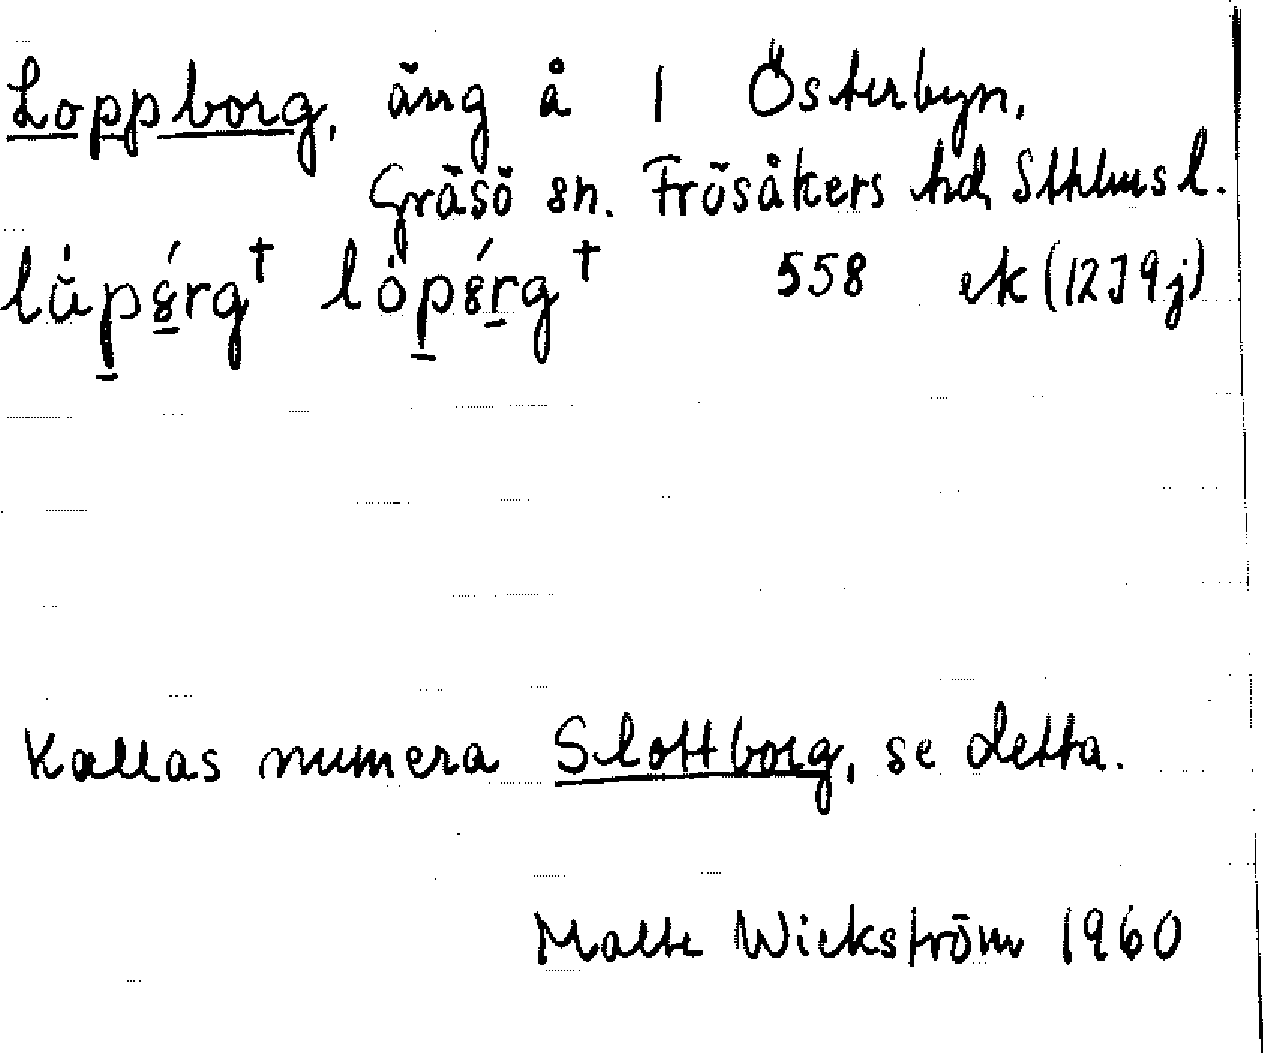 Loppborg, äng å 1 Österbyn,
Gräsö sn. Frösåkers hd, Sthlms l.
558 ek (12J9j)
Kallas numera Slottborg, se detta.
Malte Wickström 1960